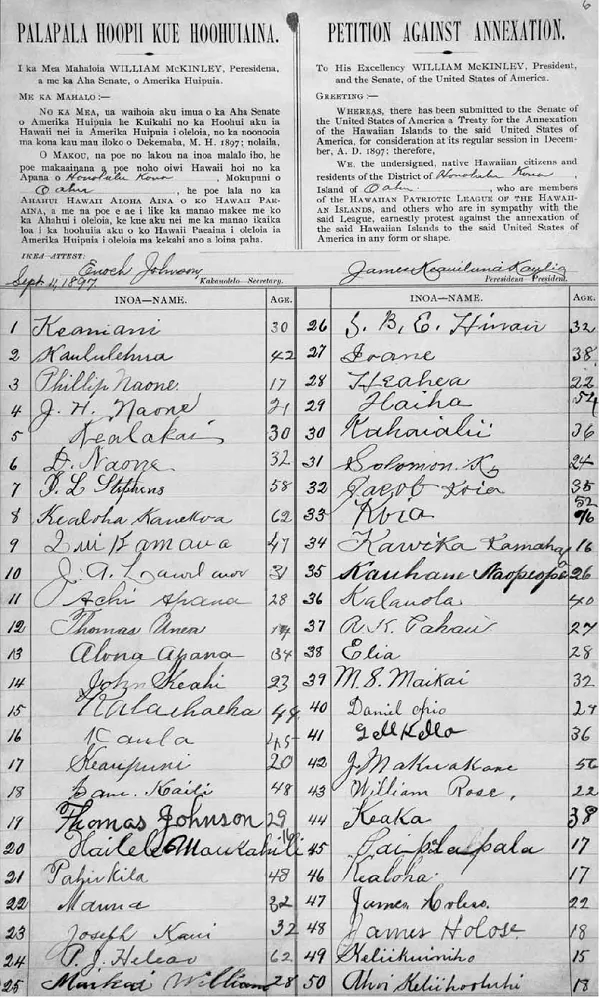 6
PALAPALA HOOPII KUE HOOHUIAINA.
I ka Mea Mahaloia WILLIAM McKINLEY, Peresidena,
a me ka Aha Senate, o Amerika Huipuia.
ME KA MAHALO:—
NO KA MEA, ua waihoia aku imua o ka Aha Senate
o Amerika Huipuia he Kuikahi no ka Hoohui aku ia
Hawaii nei ia Amerika Huipuia i oleloia, no ka noonooia
ma kona kau mau iloko o Dekemaba, M. H. 1897; nolaila,
O MAKOU, na poe no lakou na inoa malalo iho, he
poe makaainana a he poe noho oiwi Hawaii hoi no ka
Apana o Honolulu Kona, Mokupuni o
Oahu, he poe lala no ka
AHAHUI HAWAII ALOHA AINA O KO HAWAII PAE-
AINA, a me na poe e ae i like ka manao makee me ko
ka Ahahui i oleloia, ke kue aku nei me ka manao ikaika
loa i ka hoohuiia aku o ko Hawaii Paeaina i oleloia ia
Amerika Huipuia i oleloia ma kekahi ano a loina paha.
IKEA—ATTEST:
Enoch Johnson
Sept 11, 1897
Kakauolelo—Secretary.
PETITION AGAINST ANNEXATION.
To His Excellency WILLIAM McKINLEY, President,
and the Senate, of the United States of America.
GREETING:—
WHEREAS, there has been submitted to the Senate of
the United States of America a Treaty for the Annexation
of the Hawaiian Islands to the said United States of
America, for consideration at its regular session in Decem-
ber, A. D. 1897; therefore,
WE, the undersigned, native Hawaiian citizens and
residents of the District of Honolulu Kona,
Island of Oahu, who are members
of the HAWAIIAN PATRIOTIC LEAGUE OF THE HAWAII-
AN ISLANDS, and others who are in sympathy with the
said League, earnestly protest against the annexation of
the said Hawaiian Islands to the said United States of
America in any form or shape.
James Keauiluna Kaulia
Peresidena—President.
INOA—NAME. AGE.
1 Keamani 30
2 Kaululehua 42
3 Phillip Naone 17
4 J. H. Naone 21
5 Kealakai 30
6 D. Naone 32
7 L Stephens 58
8 Kealoha Kanekoa 62
9 Kamaua 47
10 J. A. 31
11 Achi Apana 28
12 Thomas
13 Alona Apana 34
14 John Keahi 23
15
16 Kaula 45
17 Keaupuni 20
18 Sam. Kaili 48
19 Thomas Johnson 29
20 Hailele Maukahili 16
21 Pahukila 48
22 Manna 32
23 Joseph Kaui 32
24 P. J. 62
25 William 28
INOA—NAME. AGE.
26 S. B. E. 32
27 Ioane 38
28 Heahea 22
29 Haiha 54
30 Kahaialii 36
31 Solomon 24
32 Jacob Koia 35
33 Koia 52 76
34 Kawika Kamahao 16
35 Kauhane Naopeope 26
36 Kalauola 40
37 R. K. Pahau 27
38 Elia 28
39 M. S. Maikai 32
40 Daniel opio 27
41 36
42 J. Makuakane 56
43 William Rose, 22
44 Keaka 38
45 Paipalapala 17
46 Kealoha 17
47 James 22
48 James Holose 18
49 Keliikuimiho 15
50 Ahoi Keliihooluhi 18